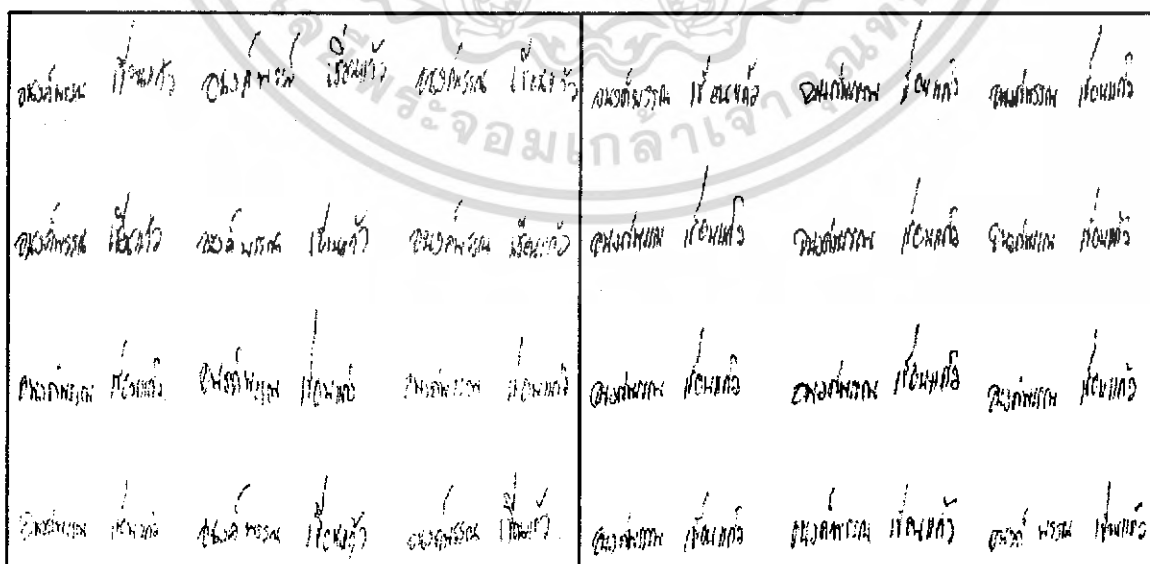 อนงค์พรรณ เขื่อนแก้ว อนงค์พรรณ เขื่อนแก้ว อนงค์พรรณ เขื่อนแก้ว อนงค์พรรณ เขื่อนแก้ว อนงค์พรรณ เขื่อนแก้ว อนงค์พรรณ เขื่อนแก้ว
พระจอมเกล้าเจ้าคุณทหาร
อนงค์พรรณ เขื่อนแก้ว อนงค์พรรณ เขื่อนแก้ว อนงค์พรรณ เขื่อนแก้ว อนงค์พรรณ เขื่อนแก้ว อนงค์พรรณ เขื่อนแก้ว อนงค์พรรณ เขื่อนแก้ว
อนงค์พรรณ เขื่อนแก้ว อนงค์พรรณ เขื่อนแก้ว อนงค์พรรณ เขื่อนแก้ว อนงค์พรรณ เขื่อนแก้ว อนงค์พรรณ เขื่อนแก้ว อนงค์พรรณ เขื่อนแก้ว
อนงค์พรรณ เขื่อนแก้ว อนงค์พรรณ เขื่อนแก้ว อนงค์พรรณ เขื่อนแก้ว อนงค์พรรณ เขื่อนแก้ว อนงค์พรรณ เขื่อนแก้ว อนงค์พรรณ เขื่อนแก้ว